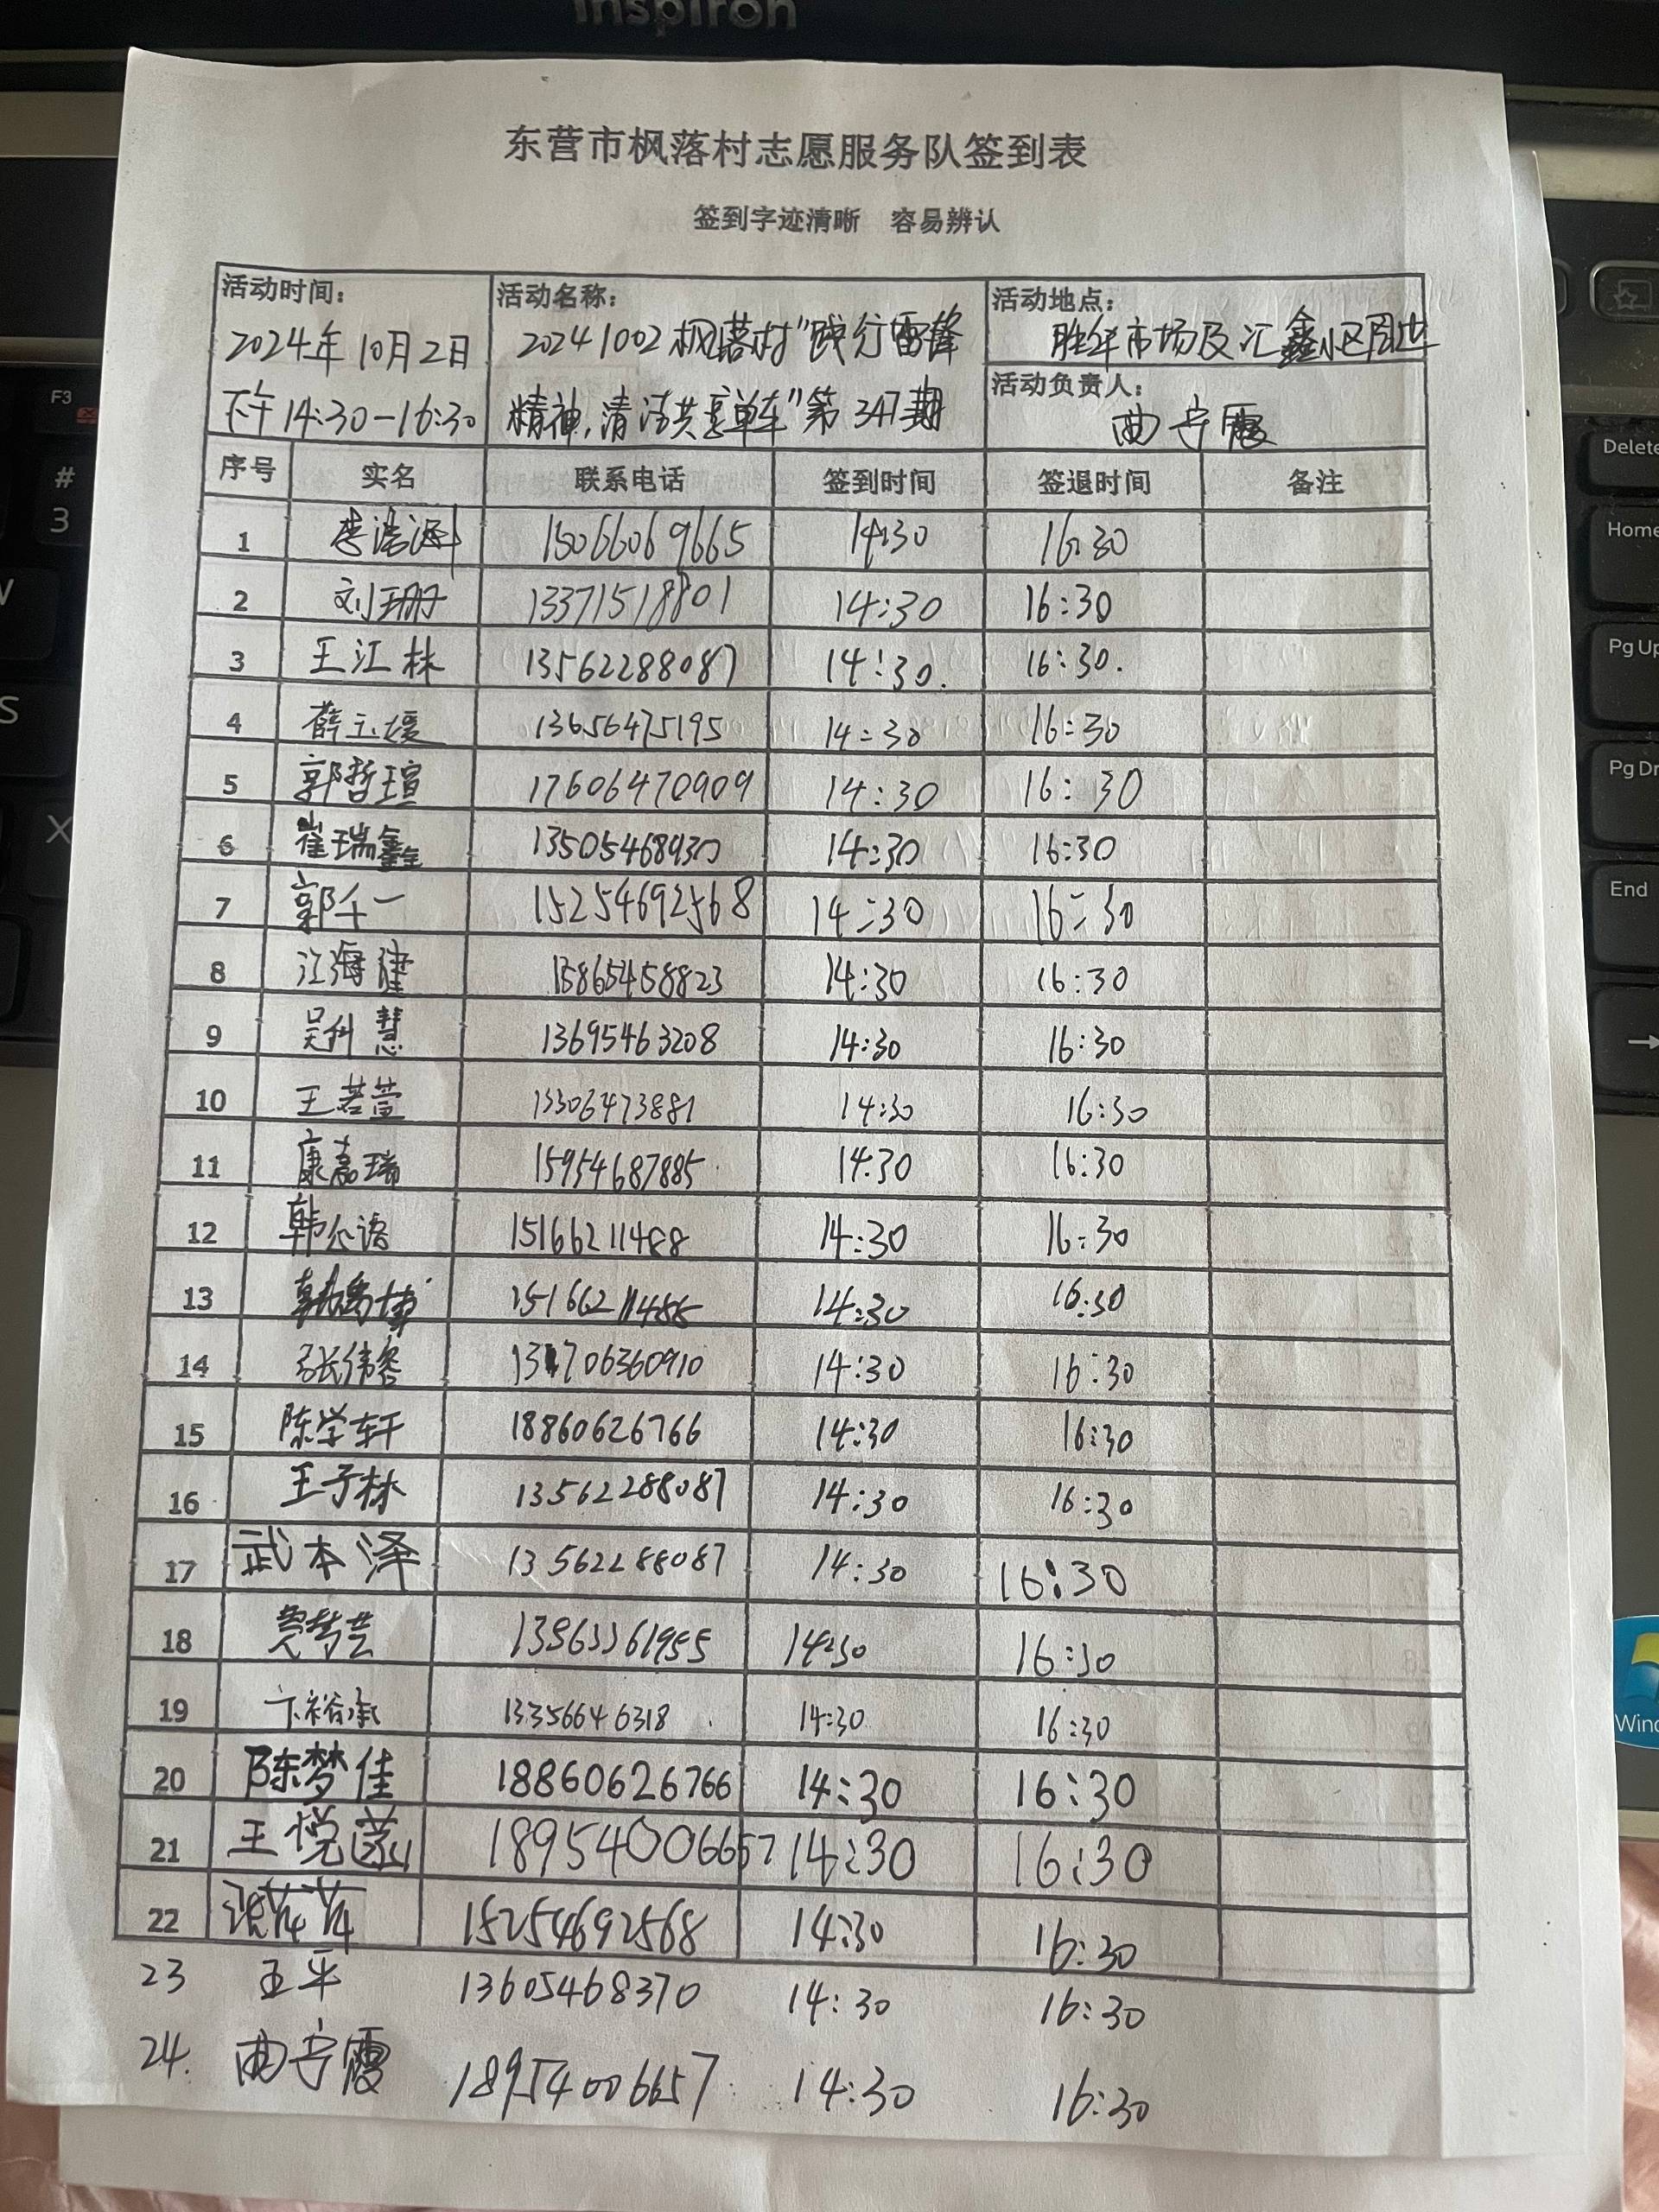 inspiron
东营市枫落村志愿服务队签到表
签到字迹清晰 容易辨认
活动时间： 活动名称： 活动地点：
2024年10月2日 20241002枫落村"践行雷锋 胜华市场及汇鑫小区周边
活动负责人：
下午14:30-16:30 精神,清洁共享单车"第347期 曲宁霞
序号 实名 联系电话 签到时间 签退时间 备注
1 李浩泽 15066069665 14:30 16:30
2 刘珊 13371518801 14:30 16:30
3 王江林 13562288087 14:30. 16:30.
4 薛玉媛 13656475195 14:30 16:30
5 郭哲瑄 17606470909 14:30 16:30
6 崔瑞鑫 13505468930 14:30 16:30
7 郭千一 15254692568 14:30 16:30
8 江海建 15865458823 14:30 16:30
9 吴科慧 13695463208 14:30 16:30
10 王若萱 13306473881 14:30 16:30
11 康嘉瑞 15954687885 14:30 16:30
12 韩公语 15166211488 14:30 16:30
13 15166211488 14:30 16:30
14 张伟容 14:30 16:30
15 陈学轩 18860626766 14:30 16:30
16 王子林 13562288087 14:30 16:30
17 武本泽 13562288087 14:30 16:30
18 14:30 16:30
19 卞裕承 13356646318 14:30 16:30
20 陈梦佳 18860626766 14:30 16:30
21 王悦 18954006657 14:30 16:30
22 张芹芹 15254692568 14:30 16:30
23 王平 13605468370 14:30 16:30
24. 曲宁霞 18954006657 14:30 16:30
F3
#
3
X
S
Delete
Home
Pg Up
Pg Dn
End